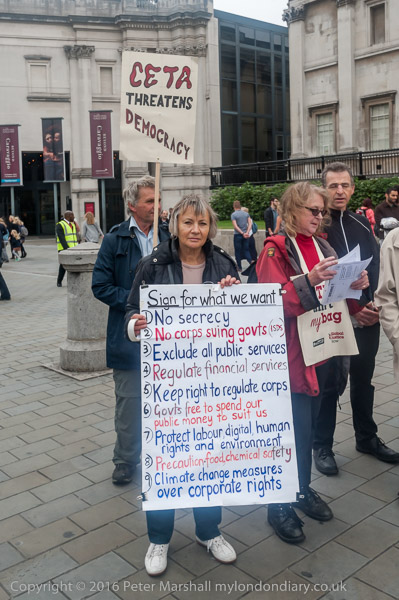 CETA
THREATENS
DEMOCRACY
BEYOND
Caravaggio
BEYOND
Caravaggio
Sign for what we want
1 No secrecy
2 No corps suing govts (ISDS)
3 Exclude all public services
4 Regulate financial services
5 Keep right to regulate corps
6 Govts free to spend our
public money to suit us
7 Protect labour, digital, human
rights and environment
8 Precaution-food, chemical safety
9 Climate change measures
over corporate rights
my
bag
Copyright © 2016 Peter Marshall mylondondiary.co.uk